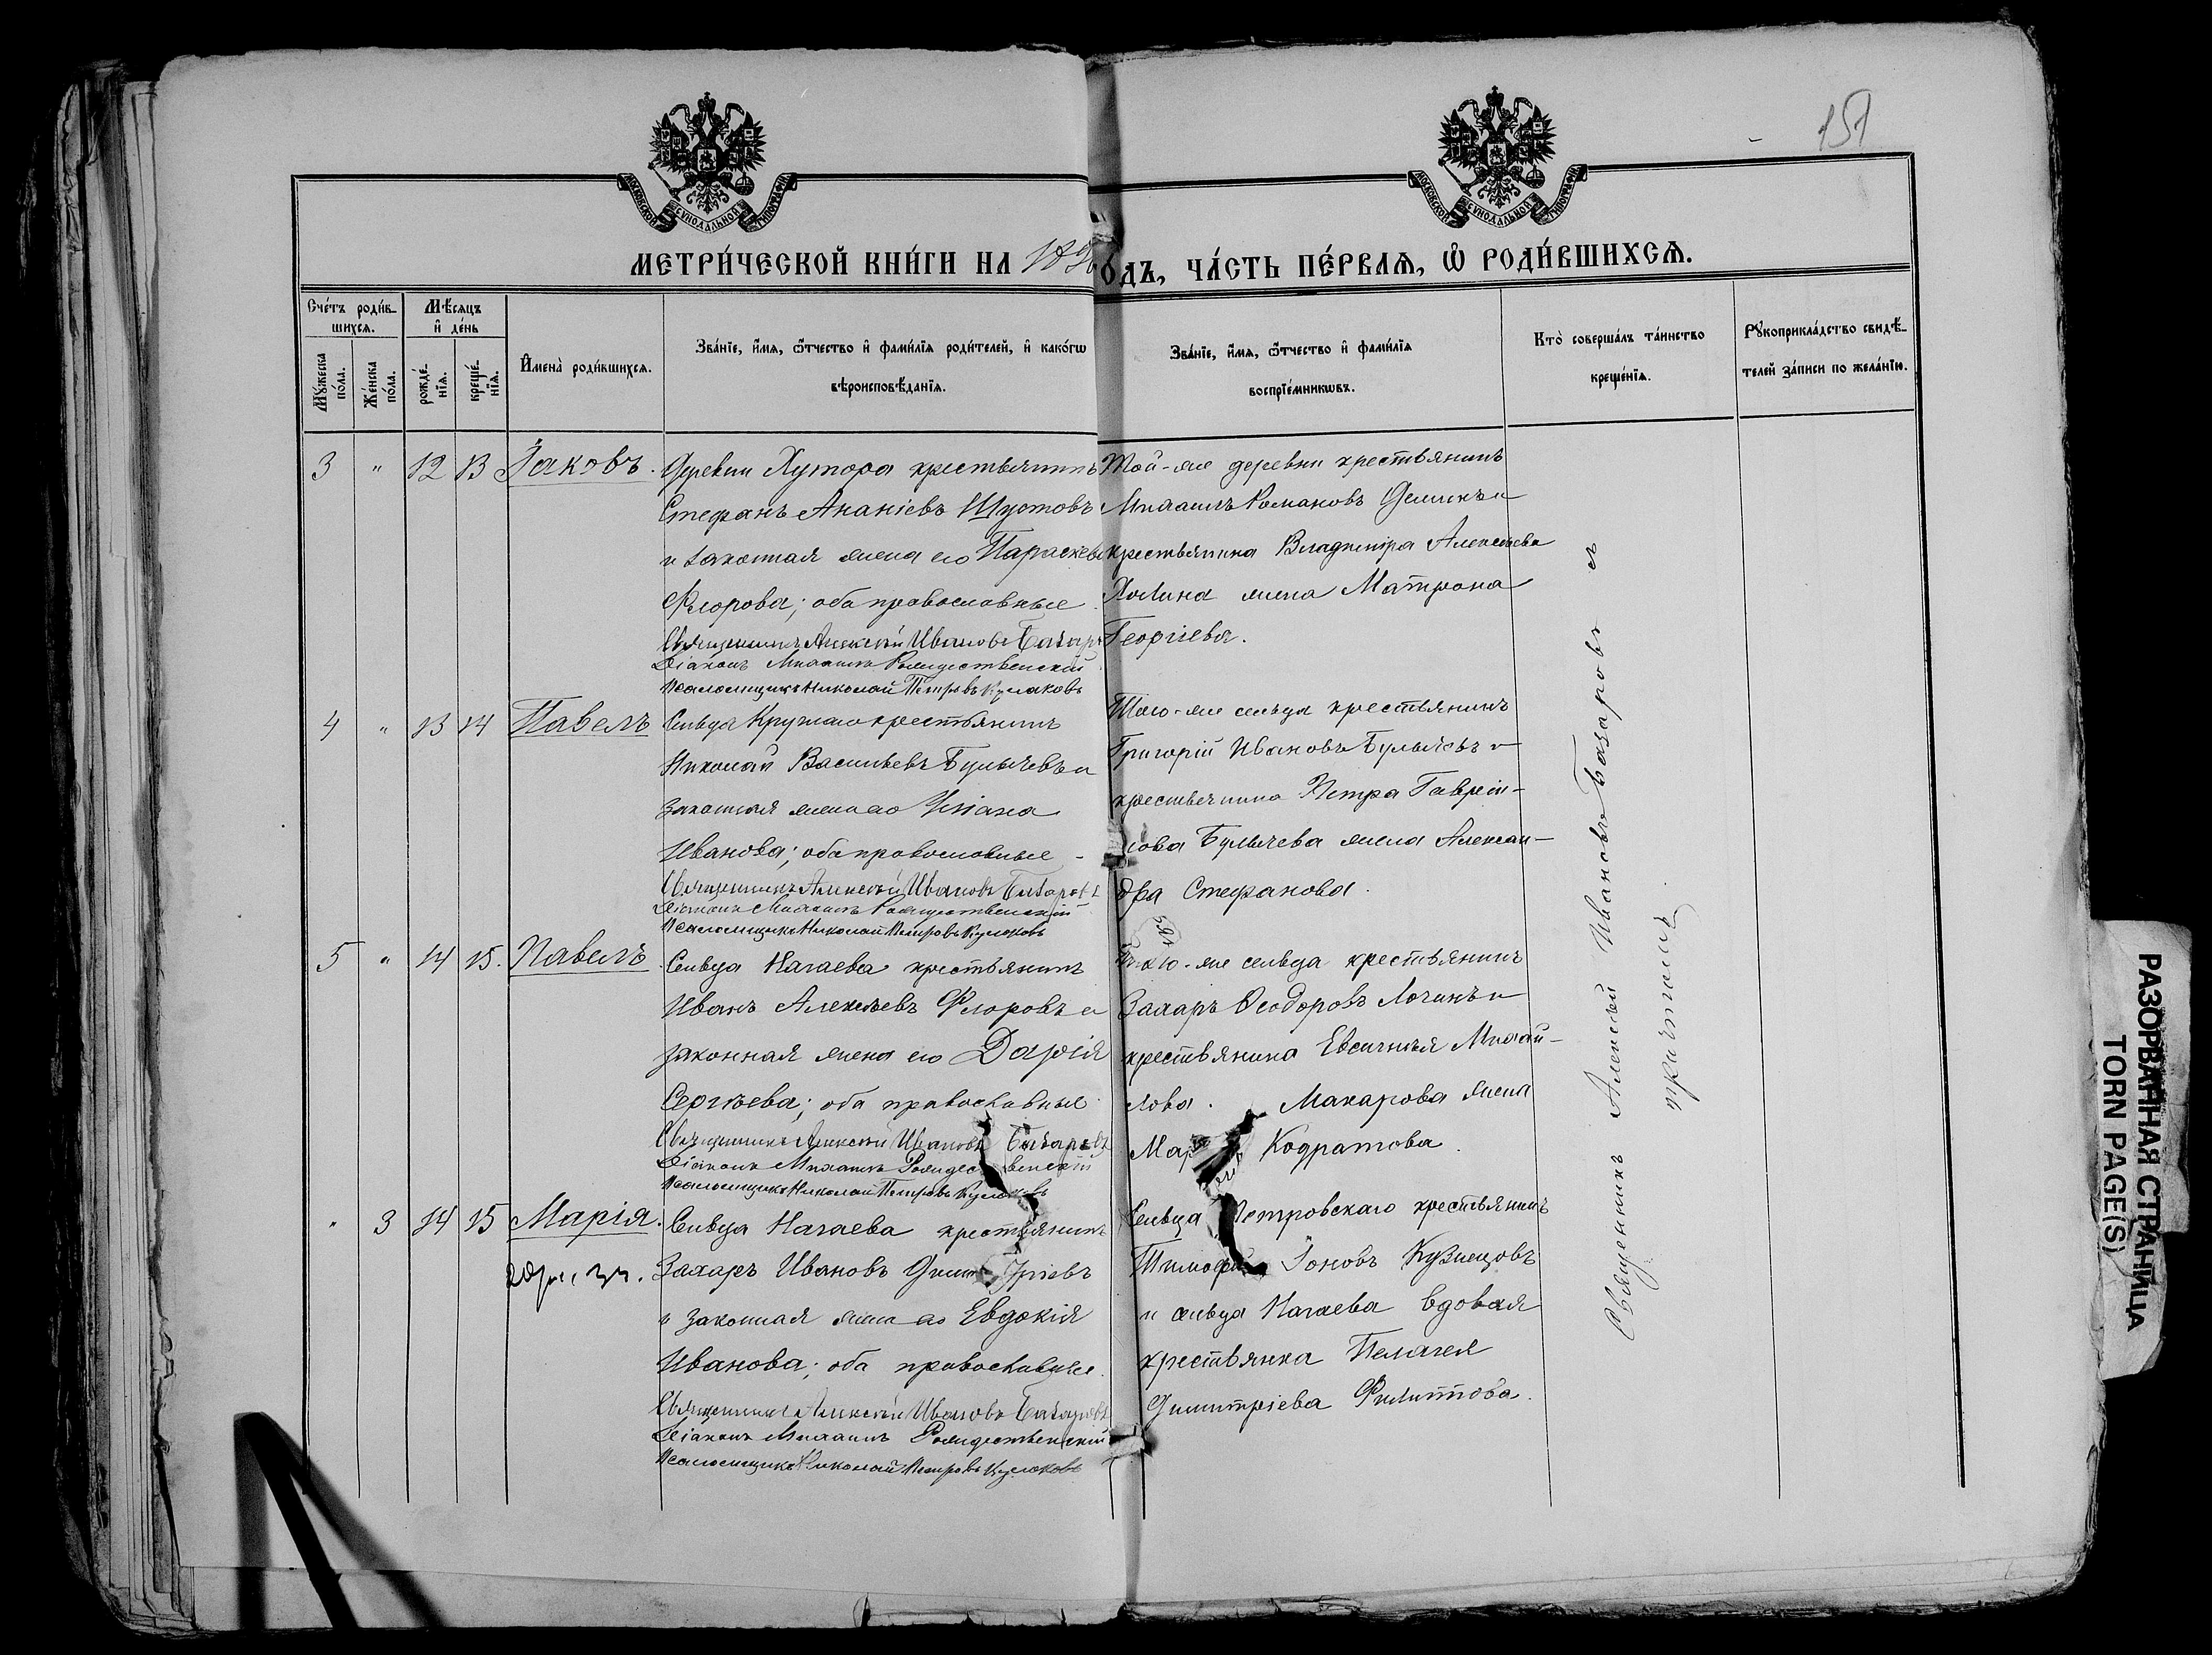 151
МОСКОВСКОЙ СѴНОДАЛЬНОЙ ТИПОГРАФІИ
МОСКОВСКОЙ СѴНОДАЛЬНОЙ ТИПОГРАФІИ
МЕТРИ́ЧЕСКОЙ КНИ́ГИ НА О́ДЪ, ЧА́СТЬ ПЕ́РВАѦ, Ѽ РОДИ́ВШИХСѦ.
Сче́тъ роди́в-
шихсѧ.
Мꙋ́жеска
по́ла.
Же́нска
по́ла.
Мѣ́сѧцъ
и҆ де́нь
рожде́-
нїѧ.
креще́-
нїѧ.
И҆мена̀ роди́вшихсѧ.
Зва́нїе, и҆́мѧ, ѻ҆́тчество и҆ фами́лїѧ роди́телей, и҆ како́гѡ
вѣроисповѣ́данїѧ.
Зва́нїе, и҆́мѧ, ѻ҆́тчество и҆ фами́лїѧ
воспрїе́мникѡвъ.
Кто̀ соверша́лъ та́инство
креще́нїѧ.
Рꙋкоприкла́дство свидѣ́-
телей за́писи по жела́нїю.
3 " 12 13 Іаковъ.
Деревни Хутора крестьянинъ
Стефанъ Ананіевъ Шустовъ
и законная жена его Параскева
Флорова; оба православные.
Священникъ Алексѣй Ивановъ Базаровъ
Діаконъ Михаилъ Рождественскій
Псаломщикъ Николай Петровъ Кулаковъ
Той-же деревни крестьянинъ
Михаилъ Романовъ Деминъ и
крестьянина Владиміра Алексѣева
жена Матрона
Георгіева.
4 " 13 14 Павелъ
Сельца Круглаго крестьянинъ
Николай Васильевъ Булычевъ и
законная жена его Уліана
Иванова; оба православные -
Священникъ Алексѣй Ивановъ Базаровъ
Діаконъ Михаилъ Рождественскій
Псаломщикъ Николай Петровъ Кулаковъ
Того-же сельца крестьянинъ
Григорій Ивановъ Булычевъ и
крестьянина Петра Гаврии-
лова Булычева жена Алексан-
дра Стефанова.
5 " 14 15. Павелъ.
Сельца Нагаева крестьянинъ
Иванъ Алексѣевъ Флоровъ и
законная жена его Дарія
Сергѣева; оба православные
Священникъ Алексѣй Ивановъ Базаровъ
Діаконъ Михаилъ Рождественскій
Псаломщикъ Николай Петровъ Кулаковъ
-же сельца крестьянинъ
Захаръ Ѳеодоровъ и
крестьянина Евсигнѣя Михаи-
лова. Макарова жена
Кодратова.
" 3 14 15 Марія.
Сельца Нагаева крестьянинъ
Захаръ Ивановъ Димитріевъ
и законная жена его Евдокія
Иванова; оба православные.
Священникъ Алексѣй Ивановъ Базаровъ
Діаконъ Михаилъ Рождественскій
Псаломщикъ Николай Петровъ Кулаковъ
Сельца Петровскаго крестьянинъ
Тимофей Іоновъ Кузнецовъ
и сельца Нагаева вдовая
крестьянка Пелагея
Димитріева Филиппова.
Священникъ Алексѣй Ивановъ Базаровъ съ
причтомъ.
РАЗОРВАННАЯ СТРАНИЦА
TORN PAGE(S)